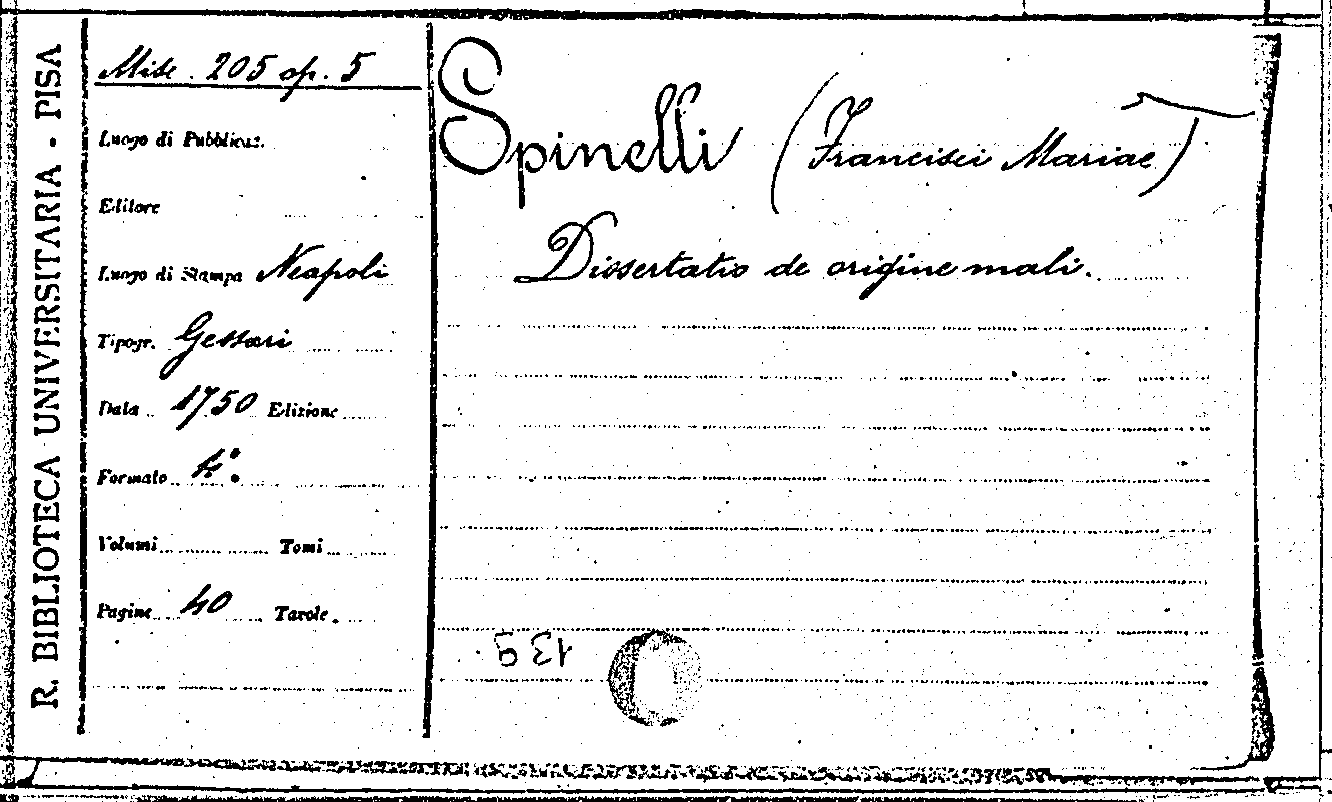 R. BIBLIOTECA UNIVERSITARIA - PISA
Misc. 205 op. 5
Luogo di Pubblicaz.
Editore
Luogo di Stampa Neapoli
Tipogr. Gessari
Data 1750 Edizione
Formato 4º.
Volumi Tomi
Pagine 40 Tavole
Spinelli (Francisci Mariae)
Dissertatio de origine mali.